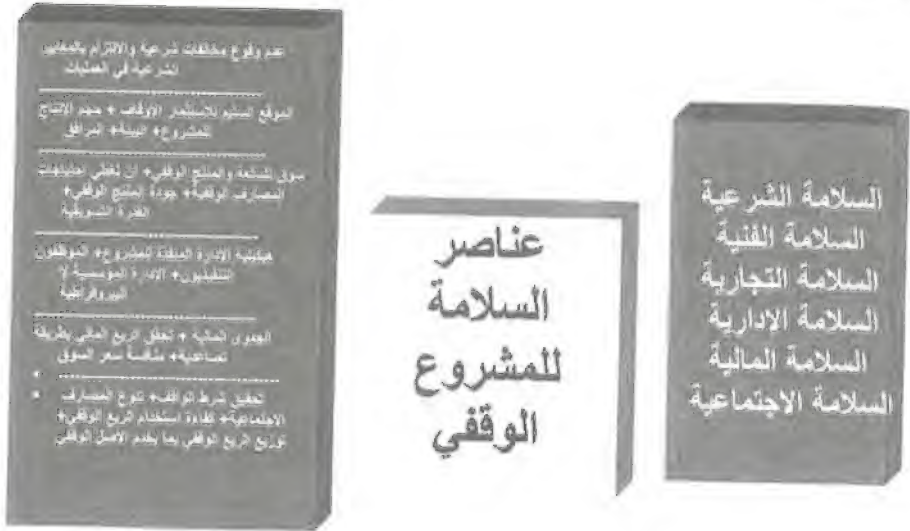 السلامة الشرعية
السلامة الفنية
السلامة التجارية
السلامة الإدارية
السلامة المالية
السلامة الاجتماعية
عناصر
السلامة
للمشروع
الوقفي
عدم وقوع مخالفات شرعية والالتزام بالمعايير
الشرعية في العمليات
الموقع السليم للاستثمار الأوقاف + حجم الإنتاج
للمشروع+ البيئة+ المرافق
سوق السلعة والمنتج الوقفي+ أن تغطي احتياجات
المصارف الوقفية+ جودة المنتج الوقفي+
القدرة التسويقية
الإدارة المنفذة للمشروع+ الموظفون
التنفيذيون+ الإدارة المؤسسية لا
البيروقراطية
الجدوى المالية + تحقق الريع المالي بطريقة
تصاعدية+ منافسة سعر السوق
تحقيق شرط الواقف+ تنوع المصارف
الاجتماعية+ كفاءة استخدام الريع الوقفي+
توزيع الريع الوقفي بما يخدم الأصل الوقفي